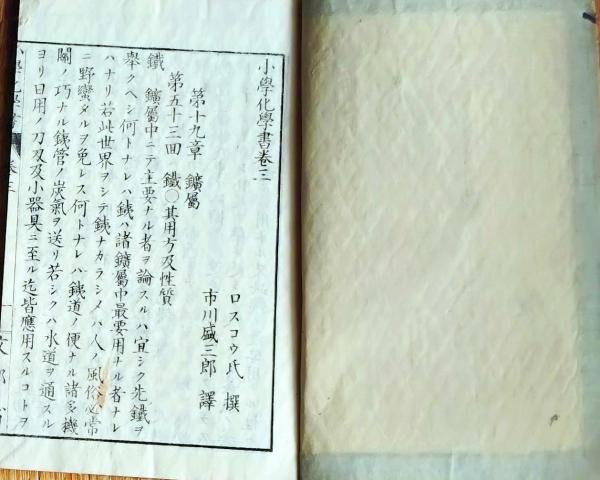 小學化學書卷三
ロスコウ氏 撰
市川盛三郎 譯
第十九章 鑛屬
第五十三回 鐵〇其用方及性質
鐵 鑛屬中ニテ主要ナル者ヲ論スルハ宜シク先鐵ヲ
擧クヘシ何トナレハ鐵ハ諸鑛屬中最要用ナル者ナレ
ハナリ若此世界ヲシテ鐵ナカラシメハ人ノ風俗必常
ニ野蠻タルヲ免レス何トナレハ鐵道ノ便ナル諸多機
關ノ巧ナル鐵管ノ炭氣ヲ送リ若シクハ水道ヲ通スル
ヨリ日用ノ刀刄及小器具ニ至ル迄皆應用スルコトヲ
小學化學書 卷三 文部省